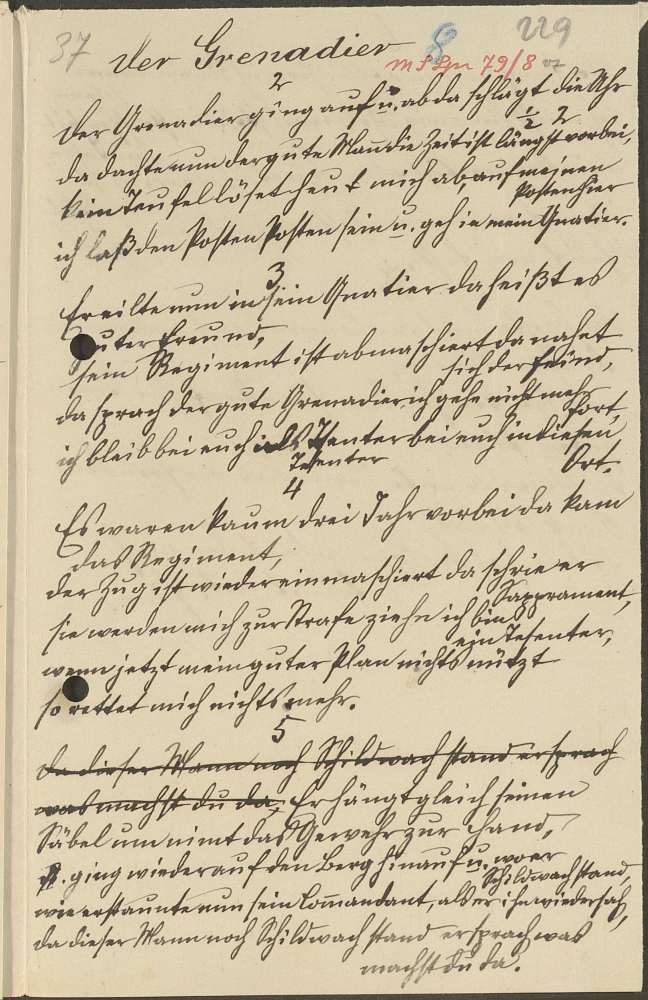 37
229
8
Der Grenadier
Ms Lpn 79/8 07
2
Der Grenadier ging auf u. ab da schlägt die Uhr
½ 2
da dachte nun der gute Mañ die Zeit ist längst vorbei,
kein Teufel löset heut mich ab, auf meinen
Posten hier
ich laß den Posten Posten sein u. geh in mein Quatier.
3
Er eilte nun in sein Quatier da heißt es
guter Freund,
sein Regiment ist abmaschiert da nahet
sich der Feind,
da sprach der gute Grenadier ich gehe nicht mehr
fort,
ich bleib bei euch als Tesenter bei euch in diesen
Tesenter
Ort.
4
Es waren kaum drei Jahr vorbei da kam
das Regiment,
der Zug ist wieder einmaschiert da schrie er
Sapprament,
sie werden mich zur Strafe ziehn ich bin
ein Tesenter,
wenn jetzt mein guter Plan nichts nützt
so rettet mich nichts mehr.
5
da dieser Mann noch Schildwach stand er sprach
was machst du da, Er hängt gleich seinen
Säbel um nimt das Gewehr zur Hand,
u. ging wieder auf den Berg hinauf u. wo er
Schildwach stand,
wie erstaunte nun sein Com̃andant, als er ihn wieder sah,
da dieser Mann noch Schildwach stand er sprach was
machst du da.